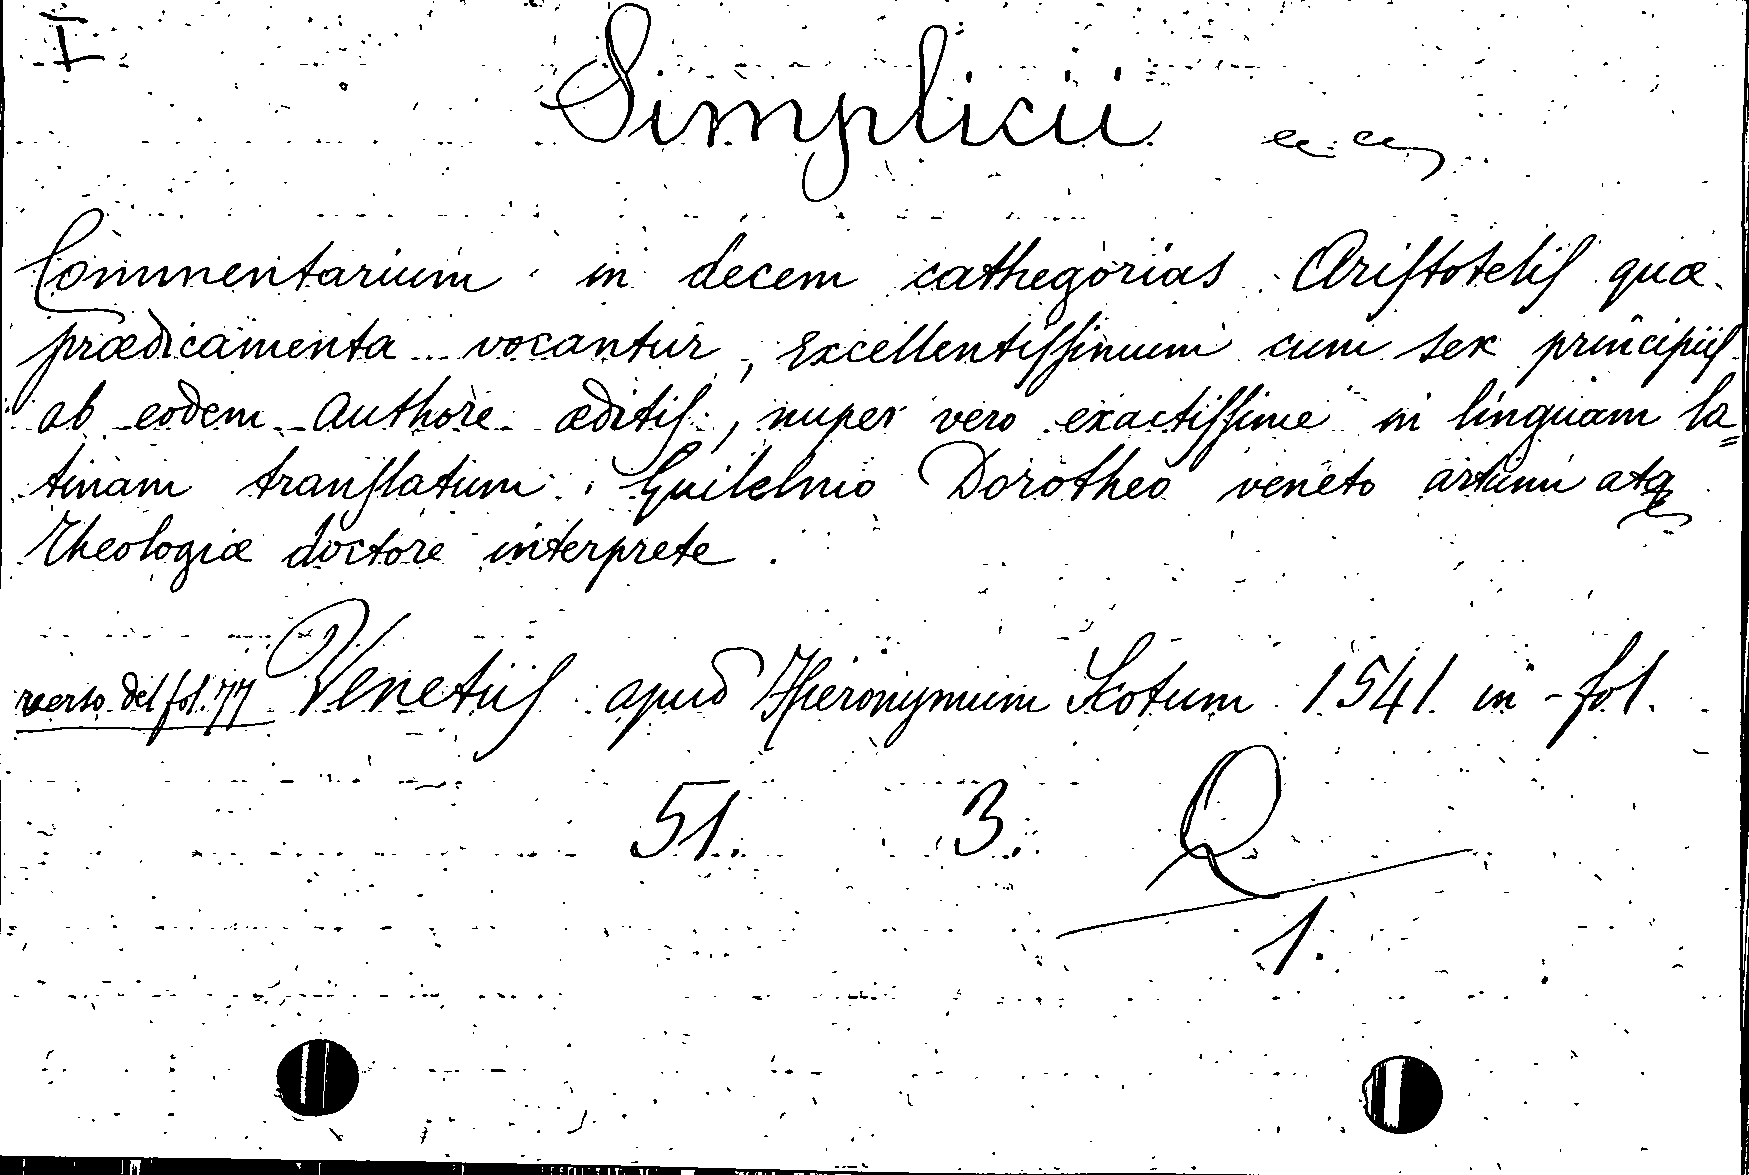 I
Simplicii
Commentarium in decem cathegorias Ariſtoteliſ quæ
prædicamenta vocantur, excellentiſſimum cum sex principiiſ
ab eodem authore æditiſ, nuper vero exactiſſime in linguam la=
tinam tranſlatum. Guilelmo Dorotheo veneto artium atq
theologiæ doctore interprete.
verso del fol. 77 Venetiiſ apud Hieronymum Scotum 1541. in-fol.
51. 3. Q
1.